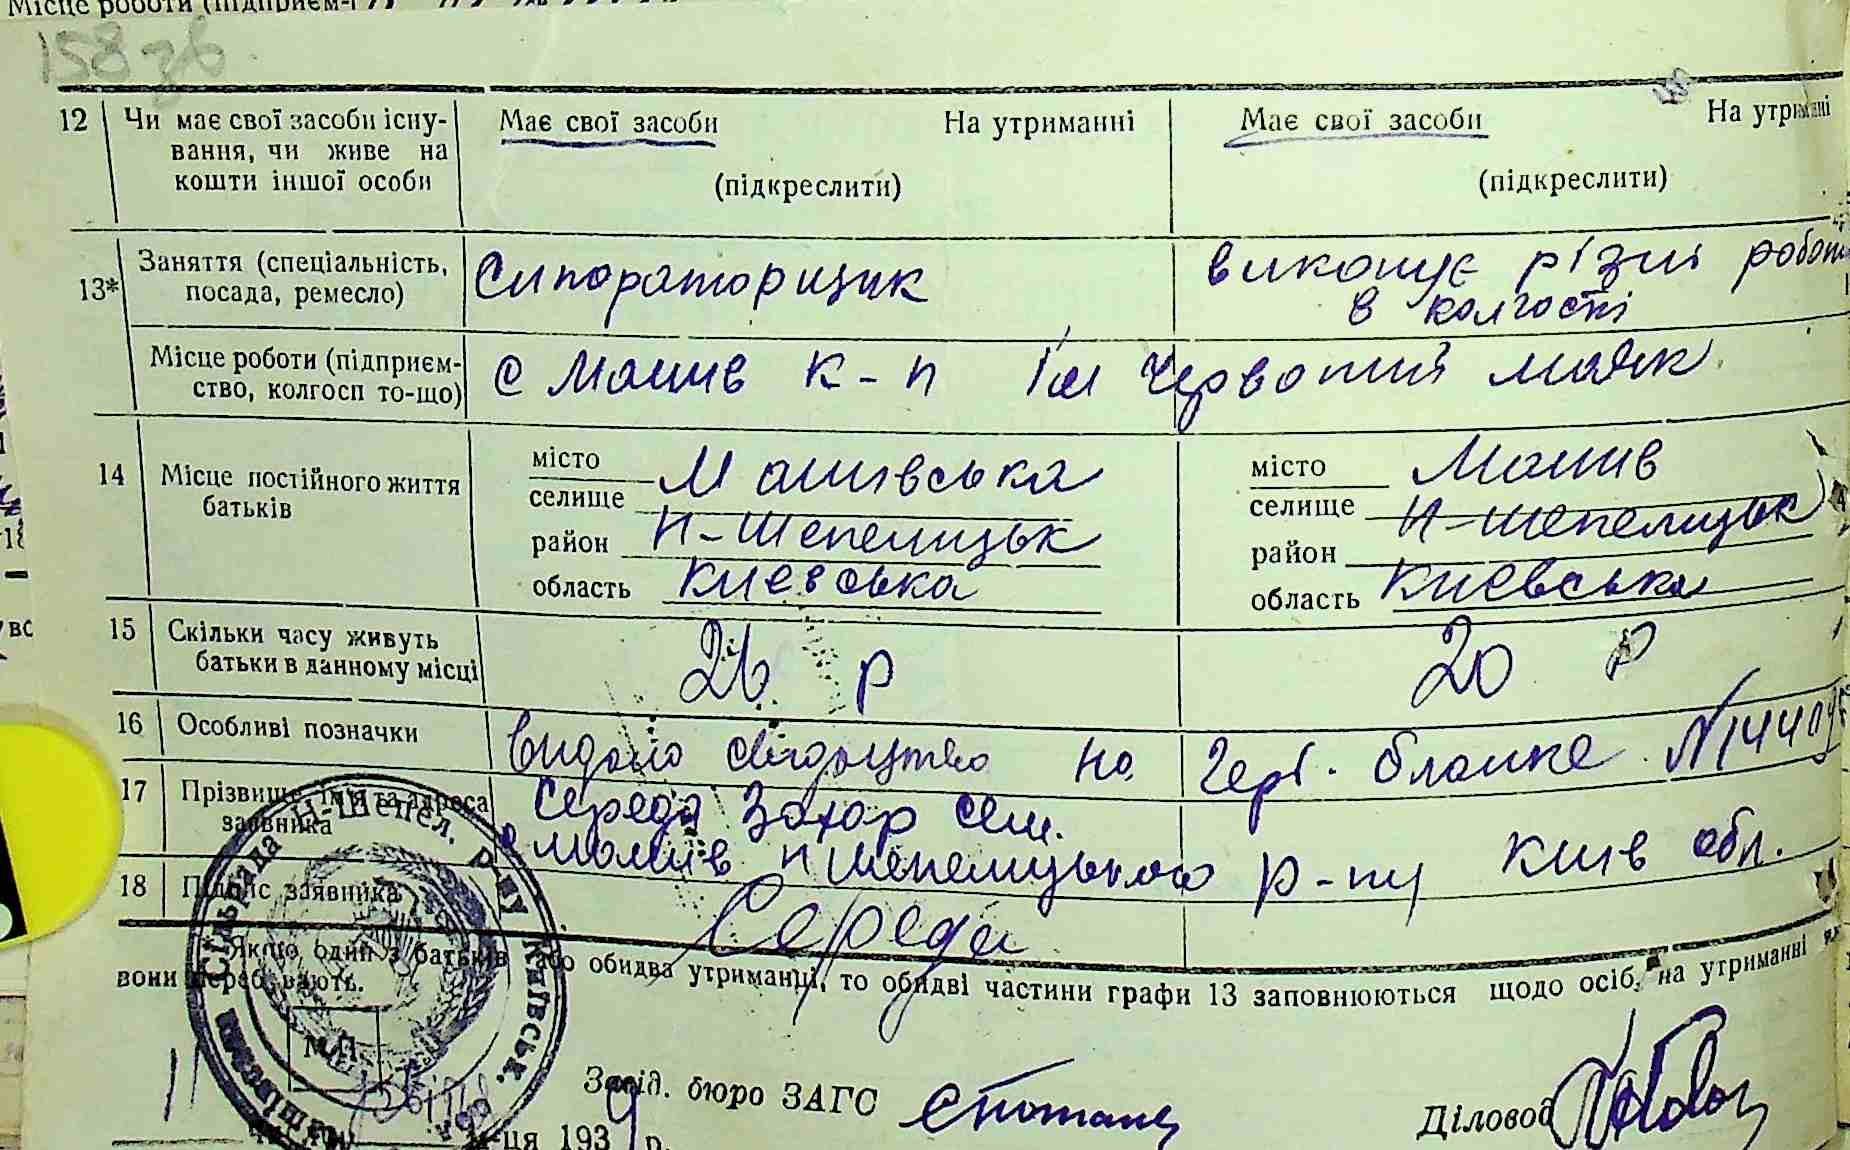 Місце роботи (підприєм-
158 зв
12 Чи має свої засоби існу-
вання, чи живе на
кошти іншої особи
Має свої засоби На утриманні
(підкреслити)
Має свої засоби На утриманні
(підкреслити)
13* Заняття (спеціальність,
посада, ремесло)
Сипораторщик
виконує різні роботи
в колгості
Місце роботи (підприєм-
ство, колгосп то-що)
с Машив к-п ім Червоний маяк
14 Місце постійного життя
батьків
місто
селище Машівська
район Н-Шепелицьк
область Киевська
місто Машив
селище
район Н-Шепелицьк
область Киевська
15 Скільки часу живуть
батьки в данному місці
26 р
20 р
16 Особливі позначки
видано свідоцтво на герб. бланке №
17 Прізвище, ім'я та адреса
заявника
Середа Захар сем.
с Машив Н Шепелицького р-ну Київ обл.
18 Підпис заявника
Середа
* Якщо один з батьків або обидва утриманці, то обидві частини графи 13 заповнюються щодо осіб, на утриманні
вони перебувають.
Сільрада Н-Шепел. р-ну Київськ.
М.П.
Завід. бюро ЗАГС
Діловод
11
м-ця 1939 р.